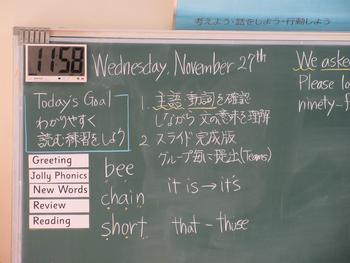 考えよう・話をしよう・行動しよう
11:58
Wednesday, November 27th
We asked
Please lo
ninety-f
Today's Goal
わかりやすく
読む練習をしよう
1. 主語 動詞を確認
しながら 文の意味を理解
2. スライド完成版
グループ毎に提出(Teams)
Greeting
Jolly Phonics
New Words
Review
Reading
bee
chain
short
it is→it's
that - those